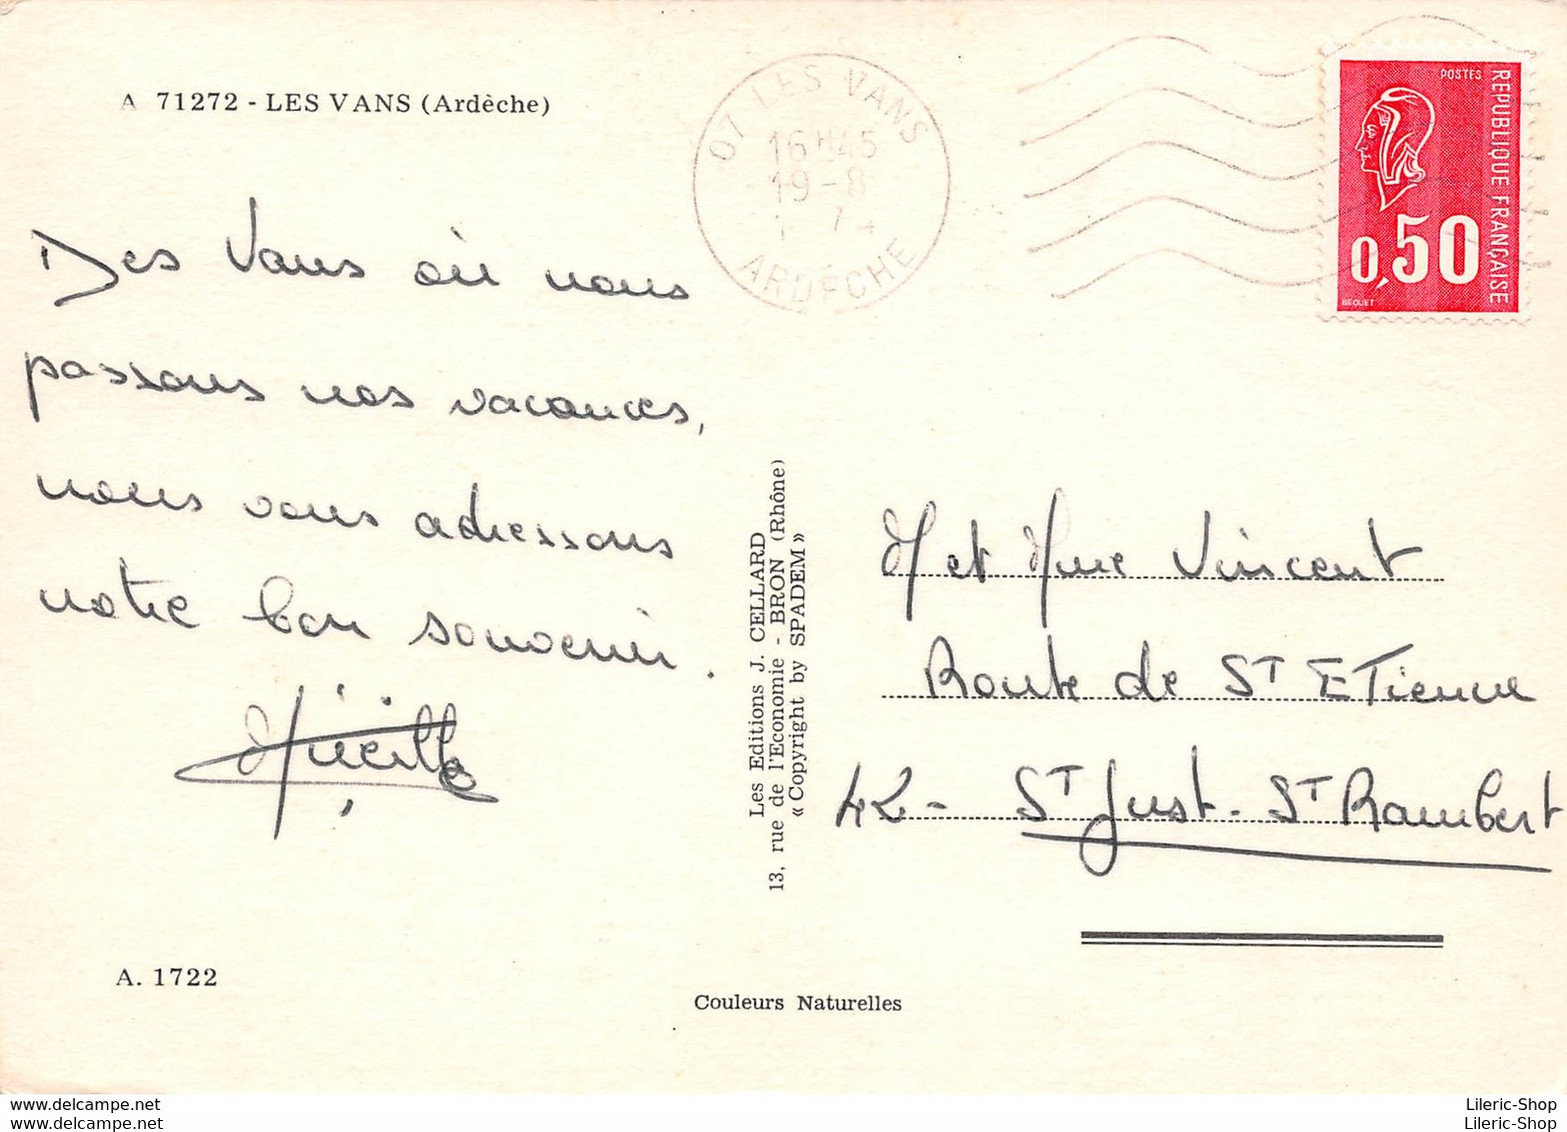 A 71272 - LES VANS (Ardèche)
07 LES VANS
16H45
19-8
1 74
ARDECHE
POSTES
REPUBLIQUE FRANÇAISE
0,50
BEQUET
Des Vans où nous
passons nos vacances,
nous vous adressons
notre bon souvenir.
Mireille
Les Editions J. CELLARD
13, rue de l'Economie - BRON (Rhône)
« Copyright by SPADEM »
M et Mme Vincent
Route de ST ETienne
42 - ST Just - ST Rambert
A. 1722
Couleurs Naturelles
www.delcampe.net
www.delcampe.net
Lileric-Shop
Lileric-Shop